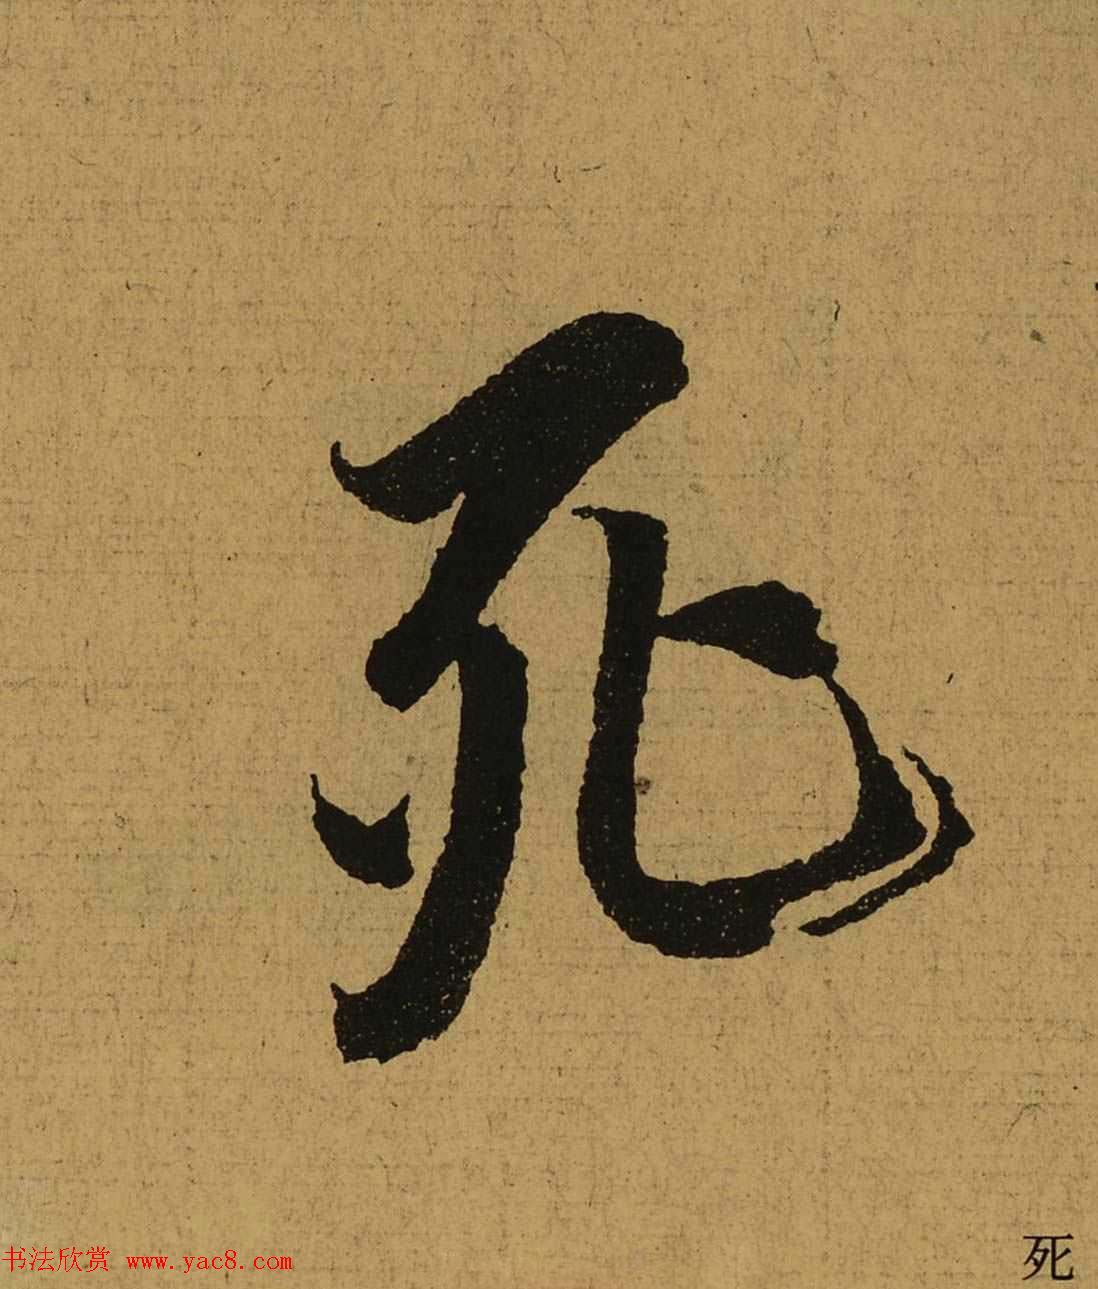 死
书法欣赏 www.yac8.com
死